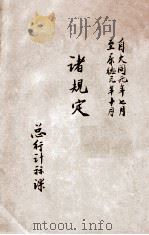 自大同元年七月
至康德元年十月
諸規定
总行計祘课